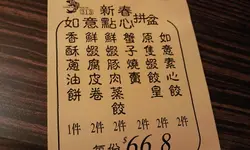 新春
如意點心拼盆
香酥蔥油餅
鮮蝦腐皮卷
鮮蝦豚肉蒸餃
蟹子燒賣
原隻蝦餃皇
如意素心餃
1件 2件 2件 2件 2件 2件
每份$66.8